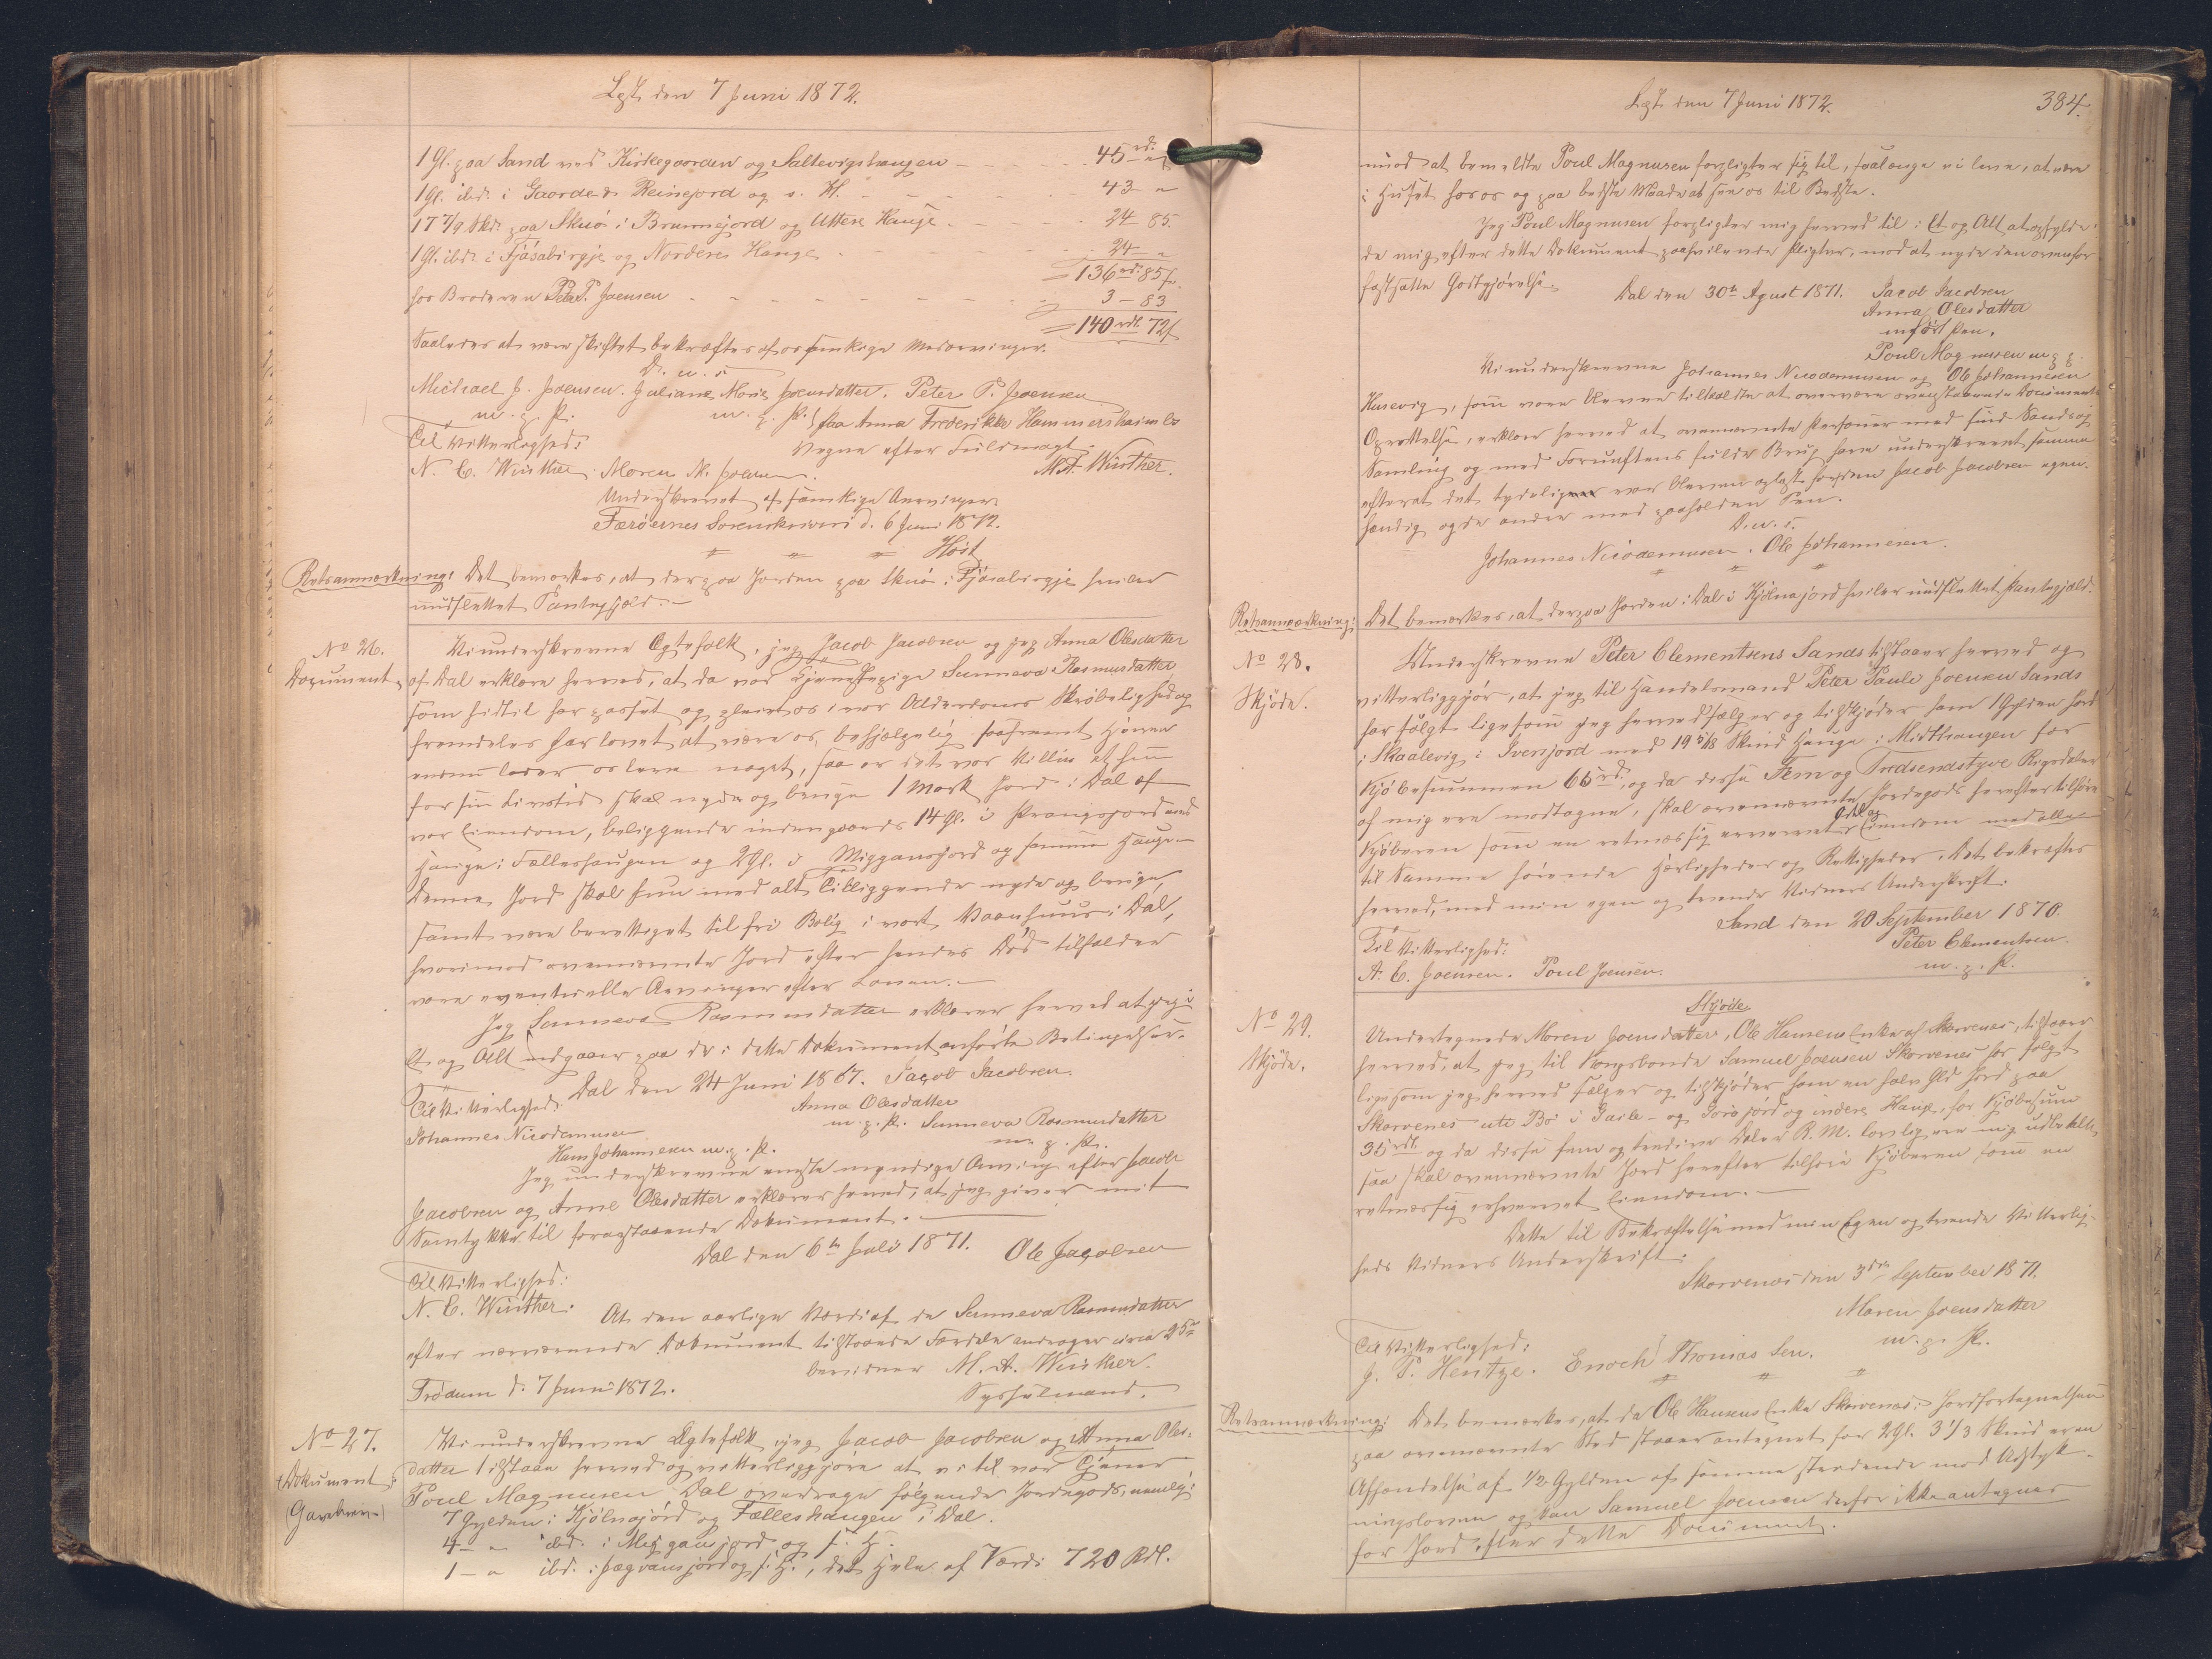 Lgst. den 7 Juni 1872.
1 Gl. paa Sand ved Kirkegaarden og Saltevigshaugen - - - 45 rd. "
1 Gl. ibd. i Gaorde d. Reinejord og s. H. - - - 43 - "
17 7/9 Skd. paa Skuø i Brunnejord og Uttere Hauge - - - 24 - 85.
1 Gl. ibd. i Fjásabirgje og Norderes Hauge - - - 24 - "
= 136 rd. 85 s.
hos Broderen Peter P. Joensen - - - 3 - 83
= 140 rdl. 72 s
Saaledes at være skiftet bekræftes af os samtlige Medarvinger.
D. u. s.
Michael J. Joensen. Juliane Marie Joensdatter. Peter P. Joensen
m. p. P. m. p. P. paa Anna Frederikke Hammershaimbs
Til Vitterlighed: Vegne efter Fuldmagt
N. C. Winther. Maren M. Joensen. M. A. Winther.
Underskrevet af samtlige Arvinger.
Færøernes Sorenskriveri d. 6 Juni 1872.
Høst
Retsanmærkning: Det bemærkes, at der paa Jorden paa Skuø i Fjásabirgje hviler
uudslettet Pantegjæld. -
No 26. Vi underskrevne Egtefolk, jeg Jacob Jacobsen og jeg Anna Olesdatter
Document af Dal erklære herved, at da vor Tjenestepige Sunneva Rasmusdatter
som hidtil har passet og pleiet os i vor Alderdoms Skrøbelighed og
fremdeles har lovet at være os behjælpelig saafremt Herren
endnu lader os leve noget, saa er det vor Villie at hun
for sin Livstid skal nyde og bruge 1 Mark Jord i Dal af
vor Eiendom, beliggende indengaards 14 Gl. i Prangsjord med
Hauge i Fælleshaugen og 2 Gl. i Miggansjord og samme Hauge -
Denne Jord skal hun med alt Tilliggende nyde og bruge,
samt være berettiget til fri Bolig i vort Vaanhuus i Dal,
hvorimod ovennævnte Jord efter hendes Død tilfalder
vore eventuelle Arvinger efter Loven. -
Jeg Sunneva Rasmusdatter erklærer herved at jeg i
Et og Alt indgaaer paa de i dette Dokument anførte Betingelser.
Dal den 24 Juni 1867. Jacob Jacobsen.
Til Vitterlighed: Anna Olesdatter
Johannes Nicodemusen m. p. P. Sunneva Rasmusdatter
Hans Johannesen m. p. P. m. p. P.
Jeg underskrevne eneste myndige Arving efter Jacob
Jacobsen og Anne Olesdatter erklærer herved, at jeg giver mit
Samtykke til foranstaaende Dokument. -
Dal den 6te Juli 1871. Ole Jacobsen
Til Vitterlighed:
N. C. Winther. At den aarlige Værdi af de Sunneva Rasmusdatter
efter nærværende Dokument tilstaaede Fordele andrager circa 25 rd
bevidner M. A. Winther.
Trødum d. 7 Juni 1872. Sysselmand.
No 27. Vi underskrevne Egtefolk, jeg Jacob Jacobsen og Anna Oles-
Dokument datter tilstaae herved og vitterliggjøre at vi til vor Tjener
(Gavebrev) Poul Magnusen Dal overdrage følgende Jordegods, nemlig:
7 Gylden i Kjølnajord og Fælleshaugen i Dal.
4 - " ibd. i Miggansjord og s. H.
1 - " ibd. i Jægvansjord og s. H., det Hele af Værdi 720 Rdl.
Lgst. den 7 Juni 1872. 384.
imod at bemeldte Poul Magnusen forpligter sig til, saalænge vi leve, at være
i Huset hos os og paa bedste Maade at see os til Bedste.
Jeg Poul Magnusen forpligter mig herved til i Et og Alt at opfylde
de mig efter dette Dokument paahvilende Pligter, mod at nyde den ovenfor
fastsatte Godtgjørelse. Dal den 30te Agust 1871. Jacob Jacobsen
Anna Olesdatter
m. ført Pen.
Poul Magnusen m. p. P.
Vi underskrevne Johannes Nicodemusen og Ole Johannesen
Husevig, som vare blevne tilkaldte at overvære ovenstaaende Documents
Oprettelse, erklære herved at ovennævnte Personer med fuld Sands og
Samling og med Forunftens fulde Brug have underskrevet samme
efterat det tydeligen var bleven oplæst for dem Jacob Jacobsen egen-
hændig og de andre med paaholden Pen.
D. u. s.
Johannes Nicodemusen. Ole Johannesen.
Retsanmærkning: Det bemærkes, at der paa Jorden i Dal i Kjølnajord hviler uudslettet Pantegjæld.
No 28. Underskrevne Peter Clementsens Sands tilstaaer herved og
Skjøde. vitterliggjør, at jeg til Handelsmand Peter Paule Joensen Sands
har solgt ligesom jeg herved sælger og tilskjøder ham 1 Gylden Jord
i Skaalevig i Iversjord med 19 5/18 Skind Hauge i Midthaugen for
Kjøbesummen 65 rd., og da disse Fem og Tredsendstyve Rigsdaler
af mig ere modtagne, skal ovennævnte Jordegods herefter tilhøre
Kjøberen som en retmæssig erhvervet Odel og Eiendom med alle
til Samme hørende Herligheder og Rettigheder. Det bekræftes
herved, med min egen og tvende Vidners Underskrift.
Sand den 20 September 1870.
Til Vitterlighed: Peter Clementsen.
A. C. Joensen. Poul Joensen. m. p. P.
Skjøde
No 29. Undertegnede Maren Joensdatter, Ole Hansens Enke af Skarvenes, tilstaaer
Skjøde. herved, at jeg til Kongsbonde Samuel Joensen Skorvenes har solgt
ligesom jeg herved sælger og tilskjøder ham en halv Gld Jord paa
Skorvenes ute Bø i Garle- og Sørejord og indere Hauge, for Kjøbesum
35 rdl. og da disse fem og tredive Daler R. M. lovlig ere mig udbetalte
saa skal ovennævnte Jord herefter tilhøre Kjøberen som en
retmæssig erhvervet Eiendom. -
Dette til Bekræftelse med min Egen og tvende Vitterlig-
heds Vidners Underskrift.
Skorvenes den 3die September 1871.
Maren Joensdatter
Til Vitterlighed: m. p. P.
J. P. Hentze. Enoch Thomas Sen.
Retsanmærkning: Det bemærkes, at da Ole Hansens Enke Skorvenes i Jordfortegnelsen
paa ovennævnte Sted staaer antegnet for 2 Gl. 3 1/3 Skind er en
Afhændelse af 1/2 Gylden af samme stridende mod Udstyk-
ningsloven og kan Samuel Joensen derfor ikke antegnes
for Jord efter dette Document.